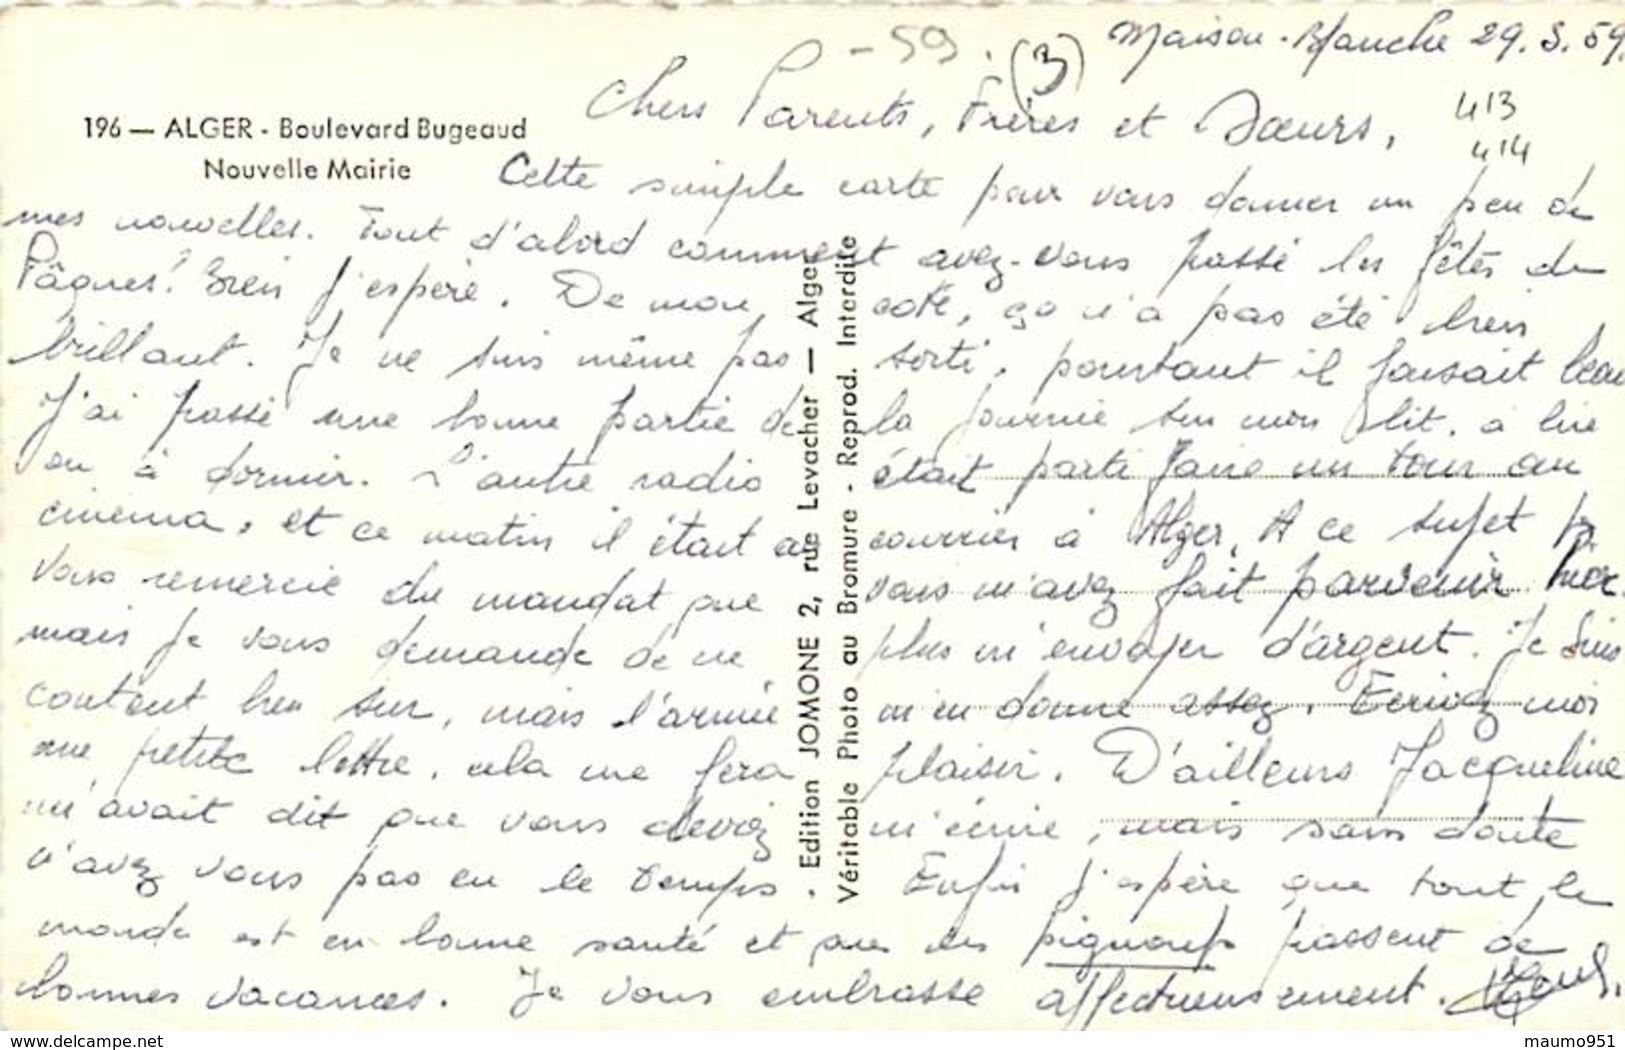 - 59. (3)
Maison-Blanche 29.3.59
413
414
196 — ALGER - Boulevard Bugeaud
Nouvelle Mairie
Chers Parents, Frères et Sœurs,
Cette simple carte pour vous donner un peu de
mes nouvelles. Tout d'abord comment avez-vous passé les fêtes de
Pâques? Bien j'espère. De mon coté, ça n'a pas été bien
brillant. Je ne suis même pas sorti, pourtant il faisait beau
J'ai passé une bonne partie de la journée sur mon lit, à lire
ou à dormir. L'autre radio était parti faire un tour au
cinéma, et ce matin il était au courrier à Alger. A ce sujet je
vous remercie du mandat que vous m'avez fait parvenir hier
mais je vous demande de ne plus m'envoyer d'argent. Je suis
content bien sur, mais l'armée m'en donne assez. Ecrivez moi
une petite lettre, cela me fera plaisir. D'ailleurs Jacqueline
m'avait dit que vous deviez m'écrire, mais sans doute
n'avez vous pas eu le temps. Enfin j'espère que tout le
monde est en bonne santé et que les pignoufs passent de
bonnes vacances. Je vous embrasse affectueusement.
Edition JOMONE 2, rue Levacher — Alger
Véritable Photo au Bromure - Reprod. Interdite
maumo951